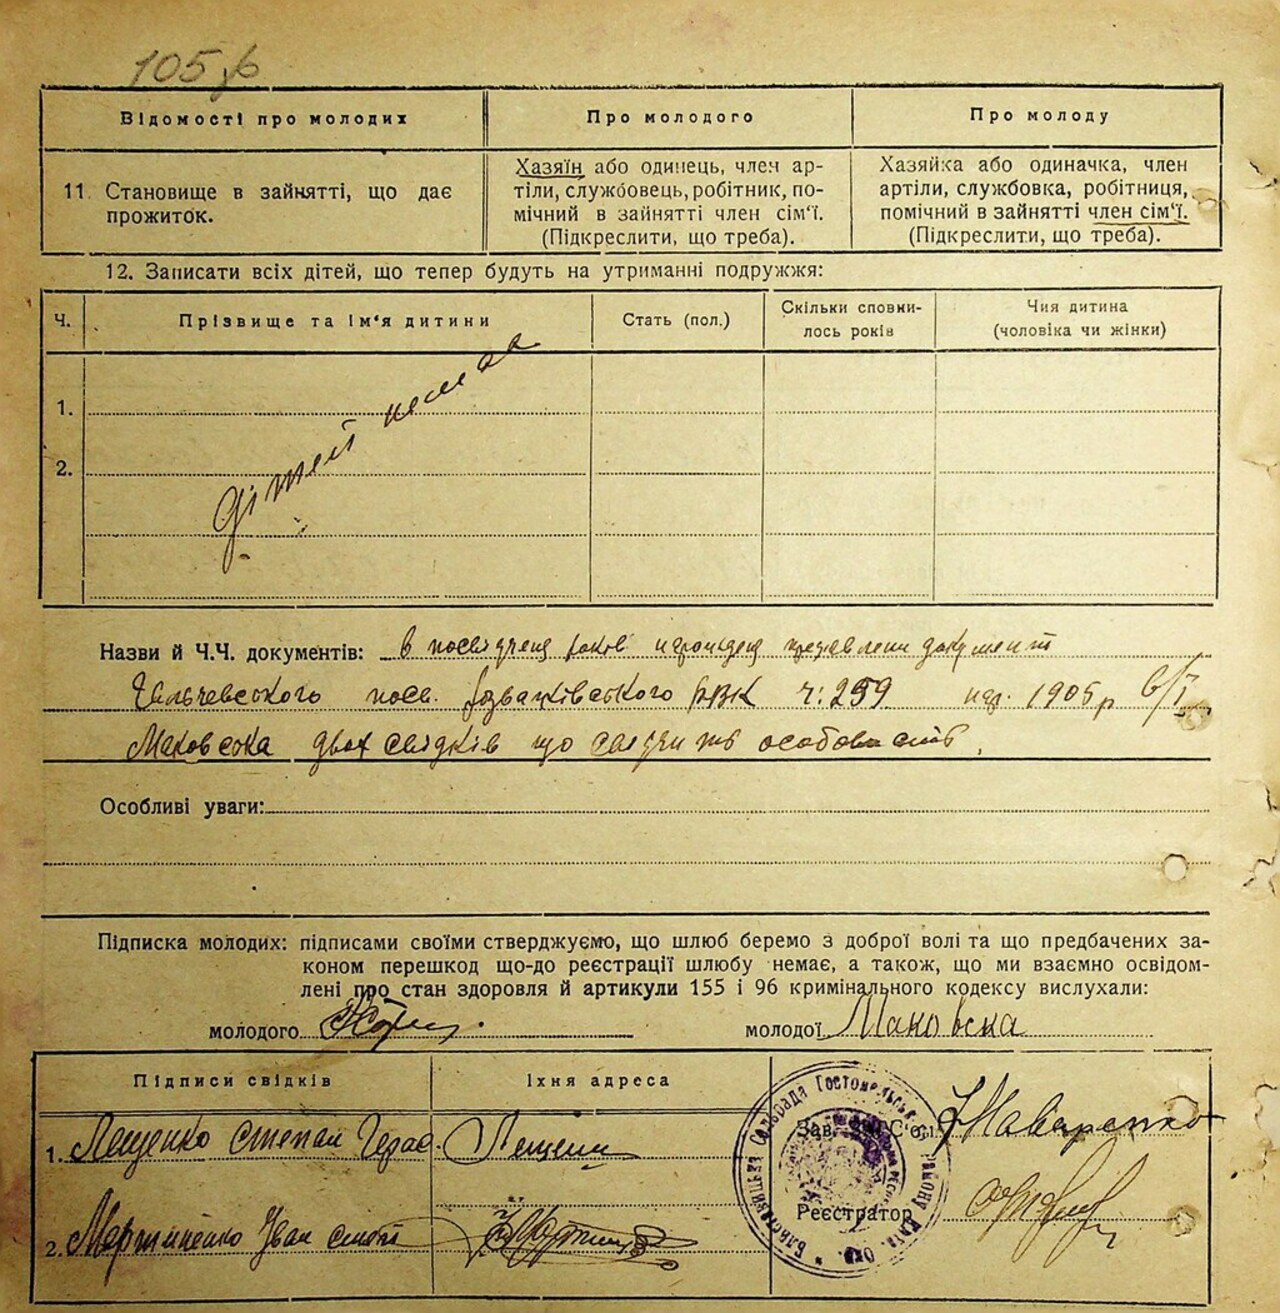 105
Відомості про молодих
Про молодого
Про молоду
11. Становище в зайнятті, що дає
прожиток.
Хазяїн або одинець, член ар-
тіли, службовець, робітник, по-
мічний в зайнятті член сім'ї.
(Підкреслити, що треба).
Хазяйка або одиначка, член
артіли, службовка, робітниця,
помічний в зайнятті член сім'ї.
(Підкреслити, що треба).
12. Записати всіх дітей, що тепер будуть на утриманні подружжя:
Ч.
Прізвище та ім'я дитини
Стать (пол.)
Скільки сповни-
лось років
Чия дитина
(чоловіка чи жінки)
1.
2.
дітей немає
Назви й Ч.Ч. документів: в посвідчення років документи
посв. РВК ч: 259 1905 р
Маковська двох свідків що свідчить особовість
Особливі уваги:
Підписка молодих: підписами своїми стверджуємо, що шлюб беремо з доброї волі та що предбачених за-
коном перешкод що-до реєстрації шлюбу немає, а також, що ми взаємно освідом-
лені про стан здоровля й артикули 155 і 96 кримінального кодексу вислухали:
молодого
молодої Маковска
Підписи свідків
Їхня адреса
1. Лещенко Степан Герас
Лещенко
Зав.
2. Мартиненко Іван
Реєстратор